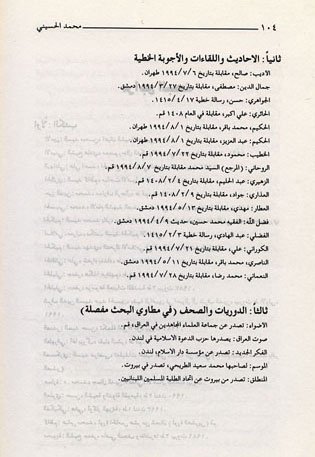 ١٠٤ محمد الحسيني
ثانياً: الاحاديث واللقاءات والأجوبة الخطية
الأديب: صالح، مقابلة بتاريخ ١٩٩٤/٧/٦ طهران.
جمال الدين: مصطفى، مقابلة بتاريخ ١٩٩٤/٣/٢٧ دمشق.
الجواهري: حسن، رسالة خطية ١٤١٥/٤/١٧.
الحائري: علي اكبر، مقابلة في العام ١٤٠٨ قم.
الحكيم: محمد باقر، مقابلة بتاريخ ١٩٩٤/٨/١ طهران.
الحكيم: عبد العزيز، مقابلة بتاريخ ١٩٩٤/٨/١ طهران.
الخطيب: محمود، مقابلة بتاريخ ١٩٩٤/٧/٢٢ قم.
الروحاني: (المرجع) السيد محمد مقابلة بتاريخ ١٩٩٤/٨/٧ قم.
الزهيري: عبد الحليم، مقابلة بتاريخ ١٤٠٨/٢/٤ قم.
العذاري: جواد، مقابلة بتاريخ ١٤٠٨/٢/٩ قم.
العطار: مهدي، مقابلة بتاريخ ١٩٩٤/٥/١٣ دمشق.
فضل الله: الفقيه محمد حسين، حديث ١٩٩٤/٤/٩ دمشق.
الفضلي: عبد الهادي، رسالة خطية ١٤١٥/٢/٣.
الكوراني: علي، مقابلة بتاريخ ١٩٩٤/٧/٢١ قم.
الناصري: محمد باقر، مقابلة بتاريخ ١٩٩٤/٥/١١ دمشق.
النعماني: محمد رضا، مقابلة بتاريخ ١٩٩٤/٧/٢٨ قم.
ثالثا: الدوريات والصحف (في مطاوي البحث مفصلة)
الاضواء: تصدر عن جماعة العلماء المجاهدين في العراق، قم.
صوت العراق: يصدرها حزب الدعوة الاسلامية في لندن.
الفكر الجديد: تصدر عن مؤسسة دار الاسلام، لندن.
الموسم: لصاحبها محمد سعيد الطريحي، تصدر في بيروت.
المنطلق: تصدر من بيروت عن اتحاد الطلبة المسلمين اللبنانيين.